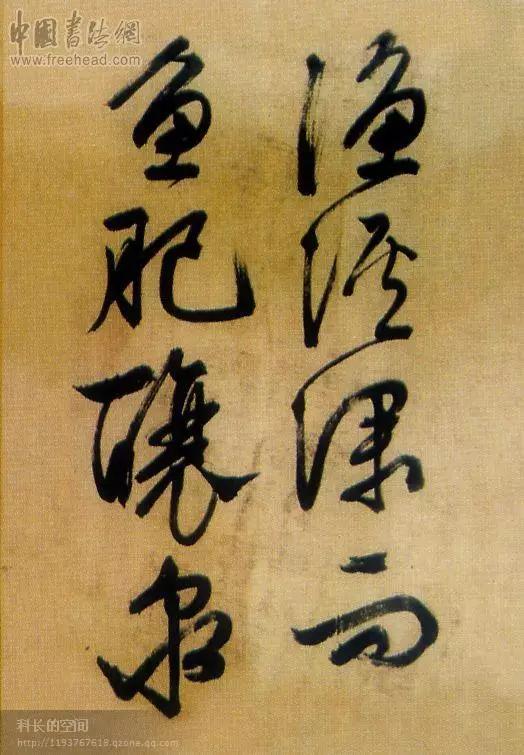 中國書法網
www.freehead.com
漁溪深而
魚肥釀泉
科长的空间
http://1193767618.qzone.qq.com